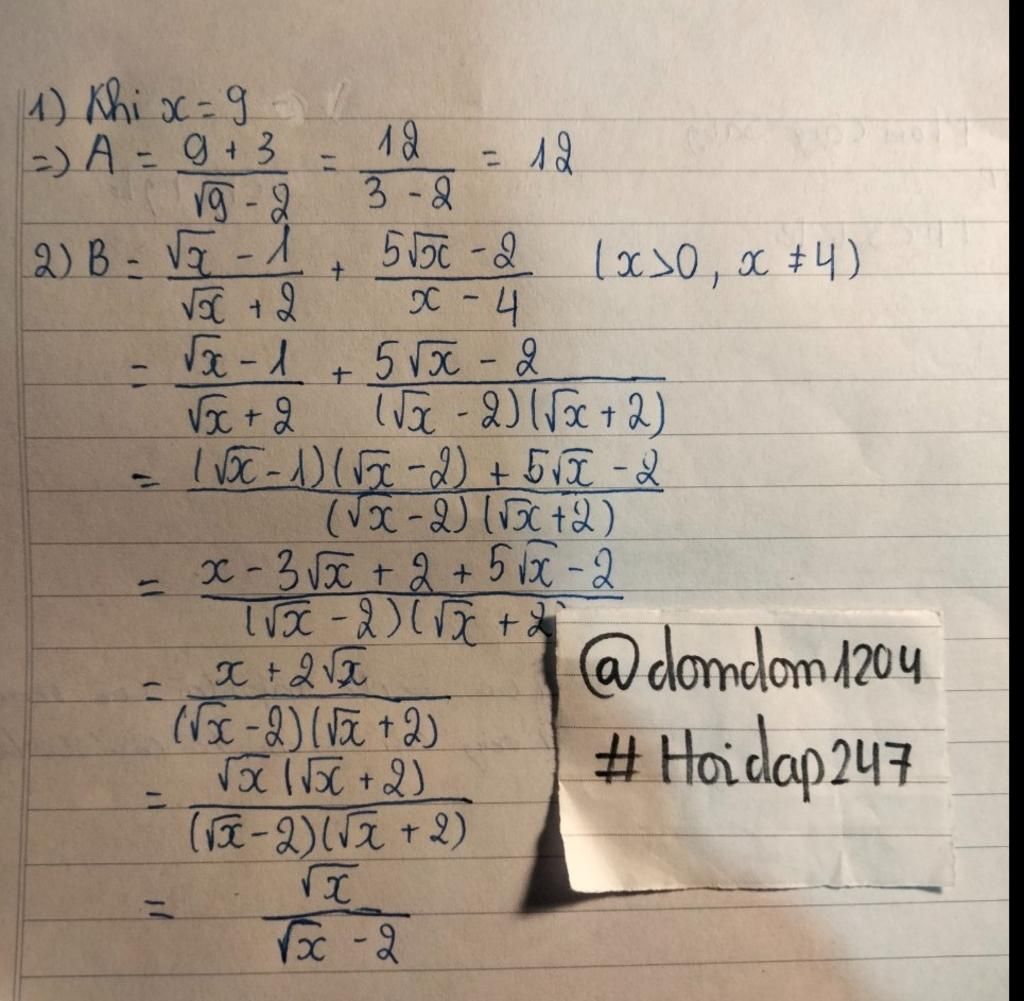 1) Khi x = 9
=> A = (9 + 3)/(√9 - 2) = 12/(3 - 2) = 12
2) B = (√x - 1)/(√x + 2) + (5√x - 2)/(x - 4) (x>0, x ≠ 4)
= (√x - 1)/(√x + 2) + (5√x - 2)/((√x - 2)(√x + 2))
= ((√x - 1)(√x - 2) + 5√x - 2)/((√x - 2)(√x + 2))
= (x - 3√x + 2 + 5√x - 2)/((√x - 2)(√x + 2
= (x + 2√x)/((√x - 2)(√x + 2))
= (√x(√x + 2))/((√x - 2)(√x + 2))
= √x/(√x - 2)
@domdom1204
# Hoidap247